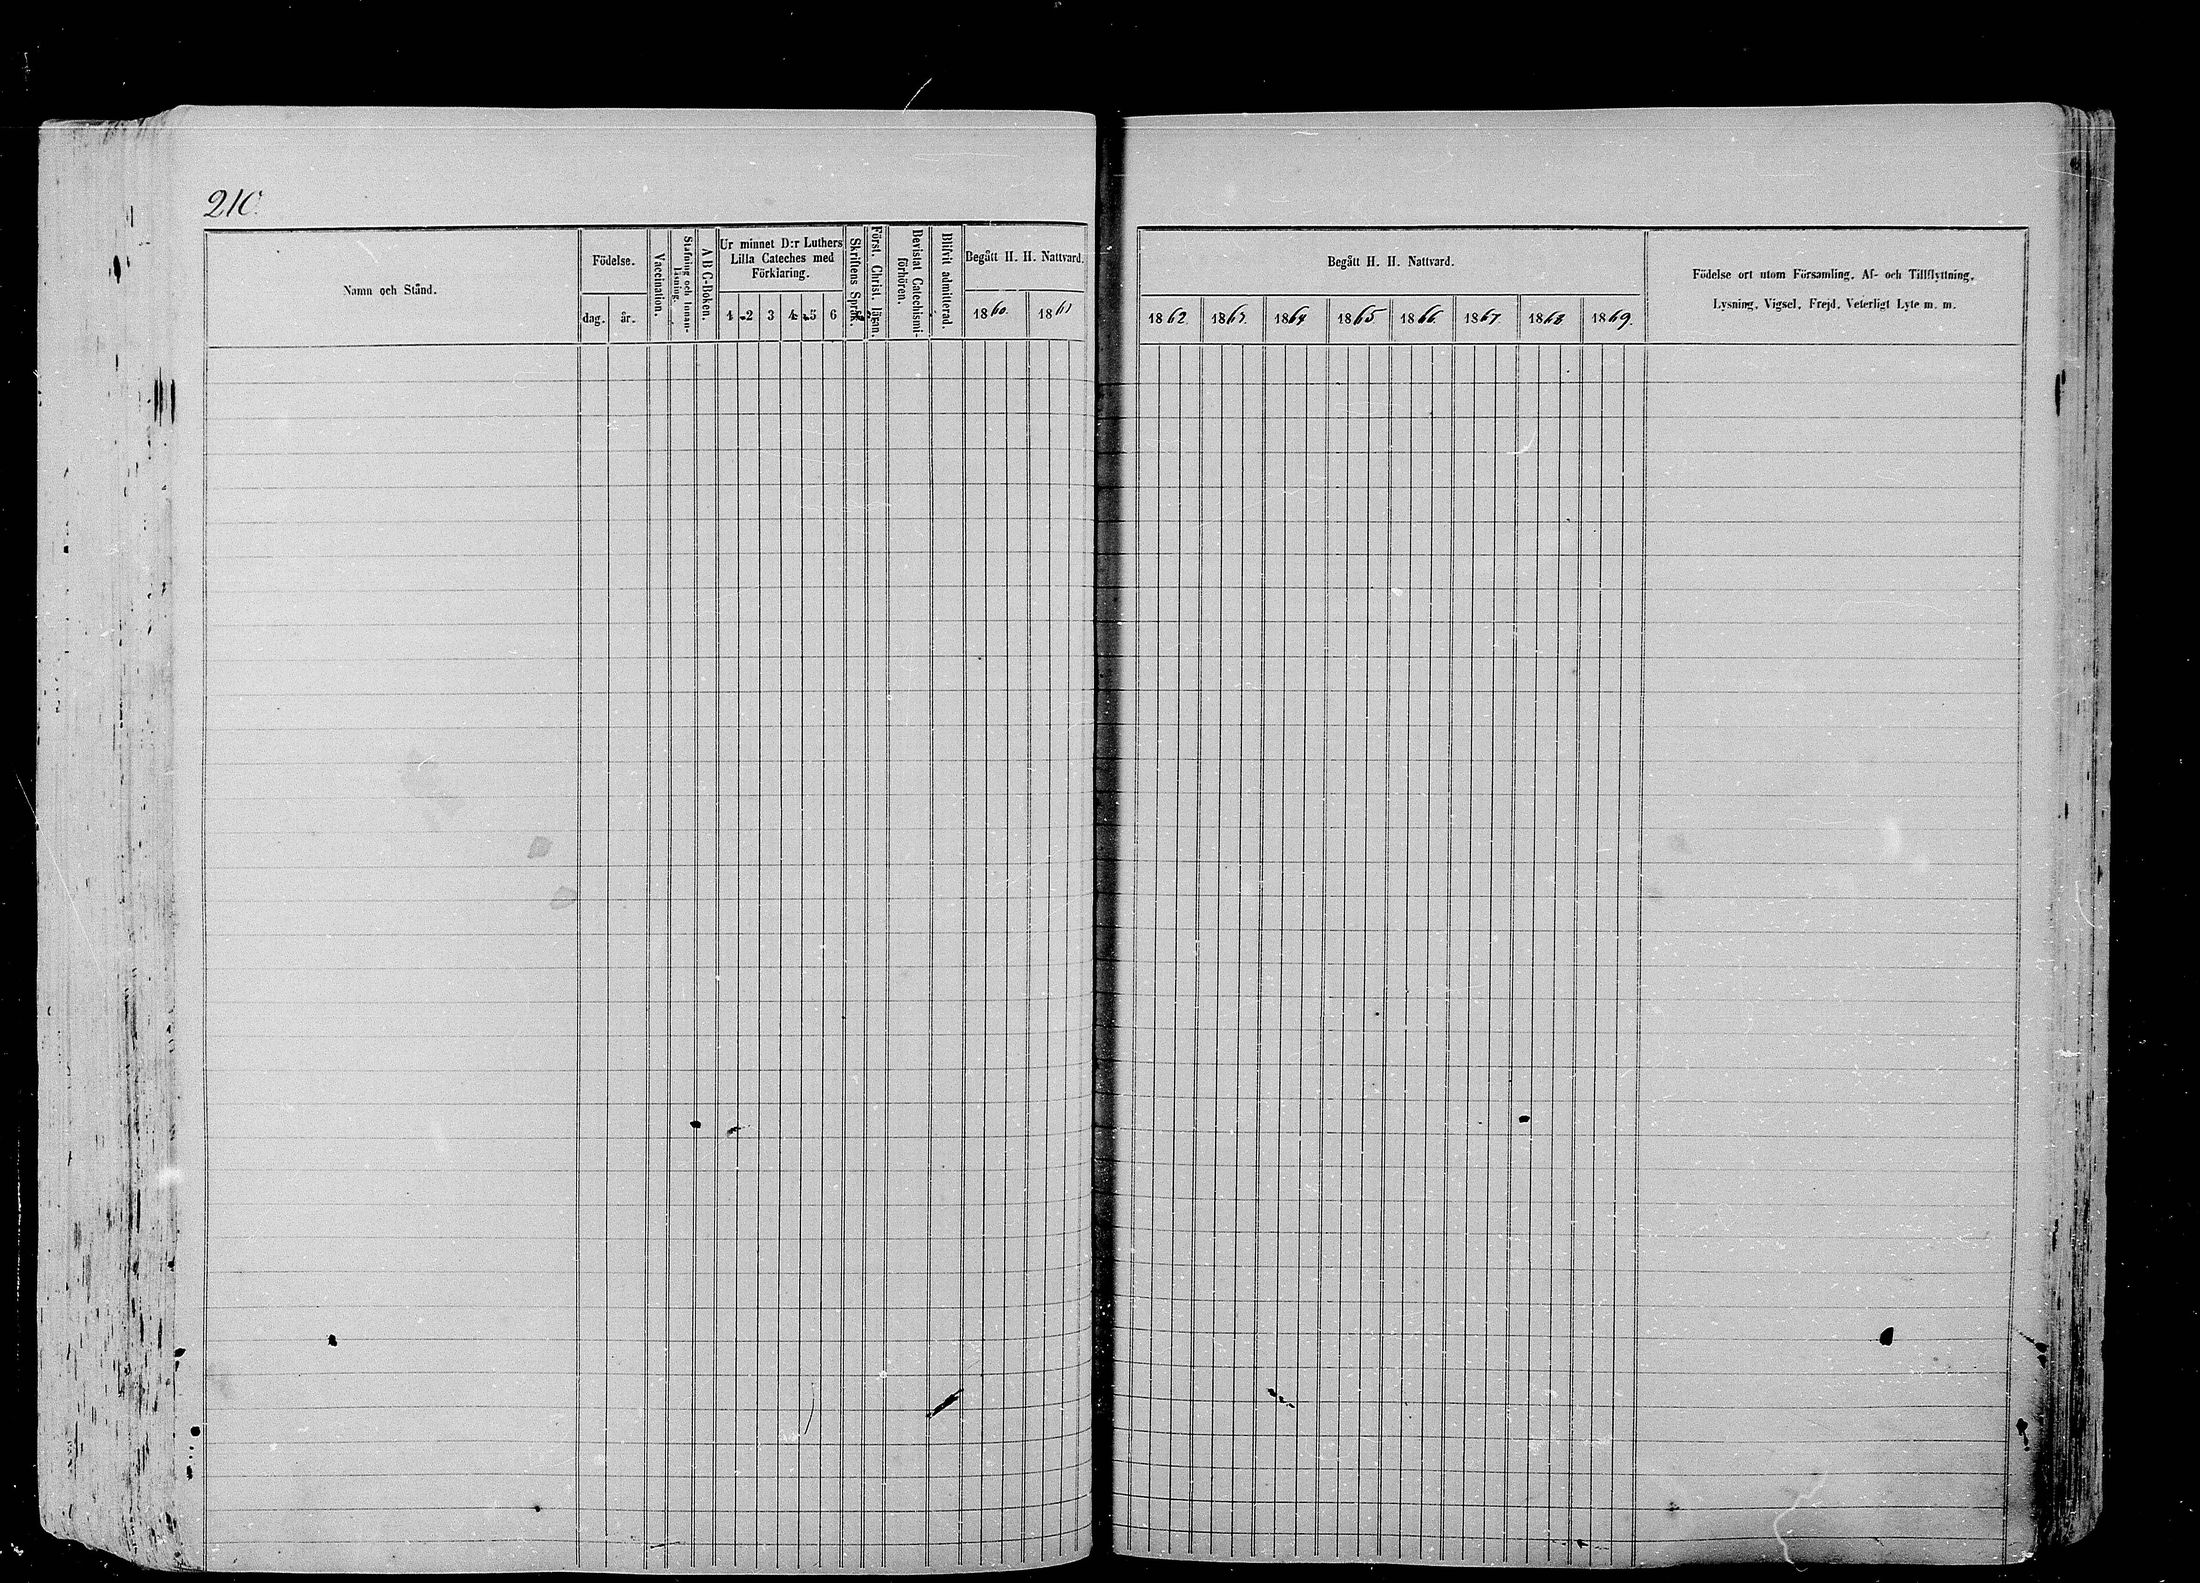 210.
Namn och Stånd.
Födelse.
dag.
år.
Vaccination.
Stafning och Innan-
läsning.
A B C-Boken.
Ur minnet D:r Luthers
Lilla Cateches med
Förklaring.
1 2 3 4 5 6
Skriftens Språk.
Först. Christ. lägan.
Bevistat Catechismi-
förhören.
Blifvit admitterad.
Begått H. H. Nattvard.
1860. 1861
Begått H. H. Nattvard.
1862. 1863. 1864 1865 1866. 1867. 1868 1869.
Födelse ort utom Församling. Af- och Tillflyttning.
Lysning. Vigsel. Frejd. Veterligt Lyte m. m.